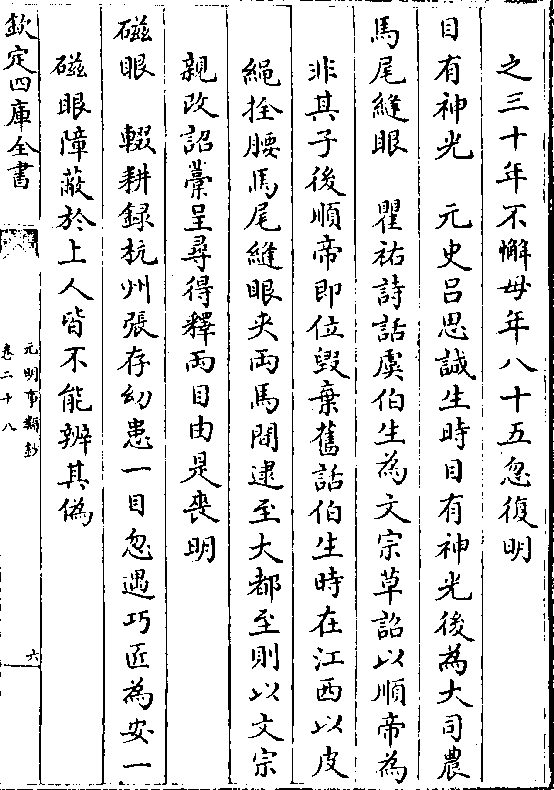 之三十年不懈母年八十五忽復明
目有神光　元史呂思誠生時目有神光後為大司農
馬尾縫眼　瞿祐詩話虞伯生為文宗草詔以順帝為
非其子後順帝即位毀棄舊詔伯生時在江西以皮
繩拴腰馬尾縫眼夾兩馬間逮至大都至則以文宗
親改詔藁呈尋得釋兩目由是喪明
磁眼　輟耕録杭州張存幼患一目忽遇巧匠為安一
磁眼障蔽於上人皆不能辨其偽
欽定四庫全書
元明事類鈔
卷二十八
六